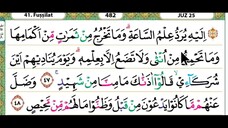 41. Fuṣṣilat 482 JUZ 25
اِلَيْهِ يُرَدُّ عِلْمُ السَّاعَةِ ۗ وَمَا تَخْرُجُ مِنْ ثَمَرٰتٍ مِّنْ اَكْمَامِهَا
وَمَا تَحْمِلُ مِنْ اُنْثٰى وَلَا تَضَعُ اِلَّا بِعِلْمِهٖ ۗ وَيَوْمَ يُنَادِيْهِمْ اَيْنَ
شُرَكَاۤءِيْۙ قَالُوْٓا اٰذَنّٰكَ مَا مِنَّا مِنْ شَهِيْدٍ ۚ ٤٧ وَضَلَّ
عَنْهُمْ مَّا كَانُوْا يَدْعُوْنَ مِنْ قَبْلُ وَظَنُّوْا مَا لَهُمْ مِّنْ مَّحِيْصٍ ٤٨